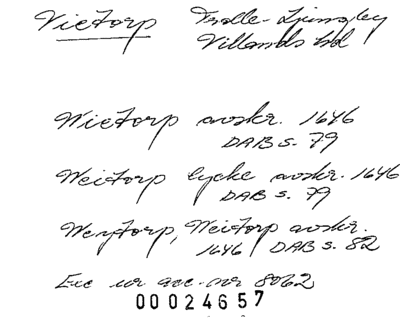 Vietorp Trolle-Ljungby
Villands hd
Wietorp avskr. 1646
DAB s. 79
Weitorp lycke avskr. 1646
DAB s. 79
Weytorp, Weitorp avskr.
1646 DAB s. 82
Exc ur acc. nr 8062
00024657